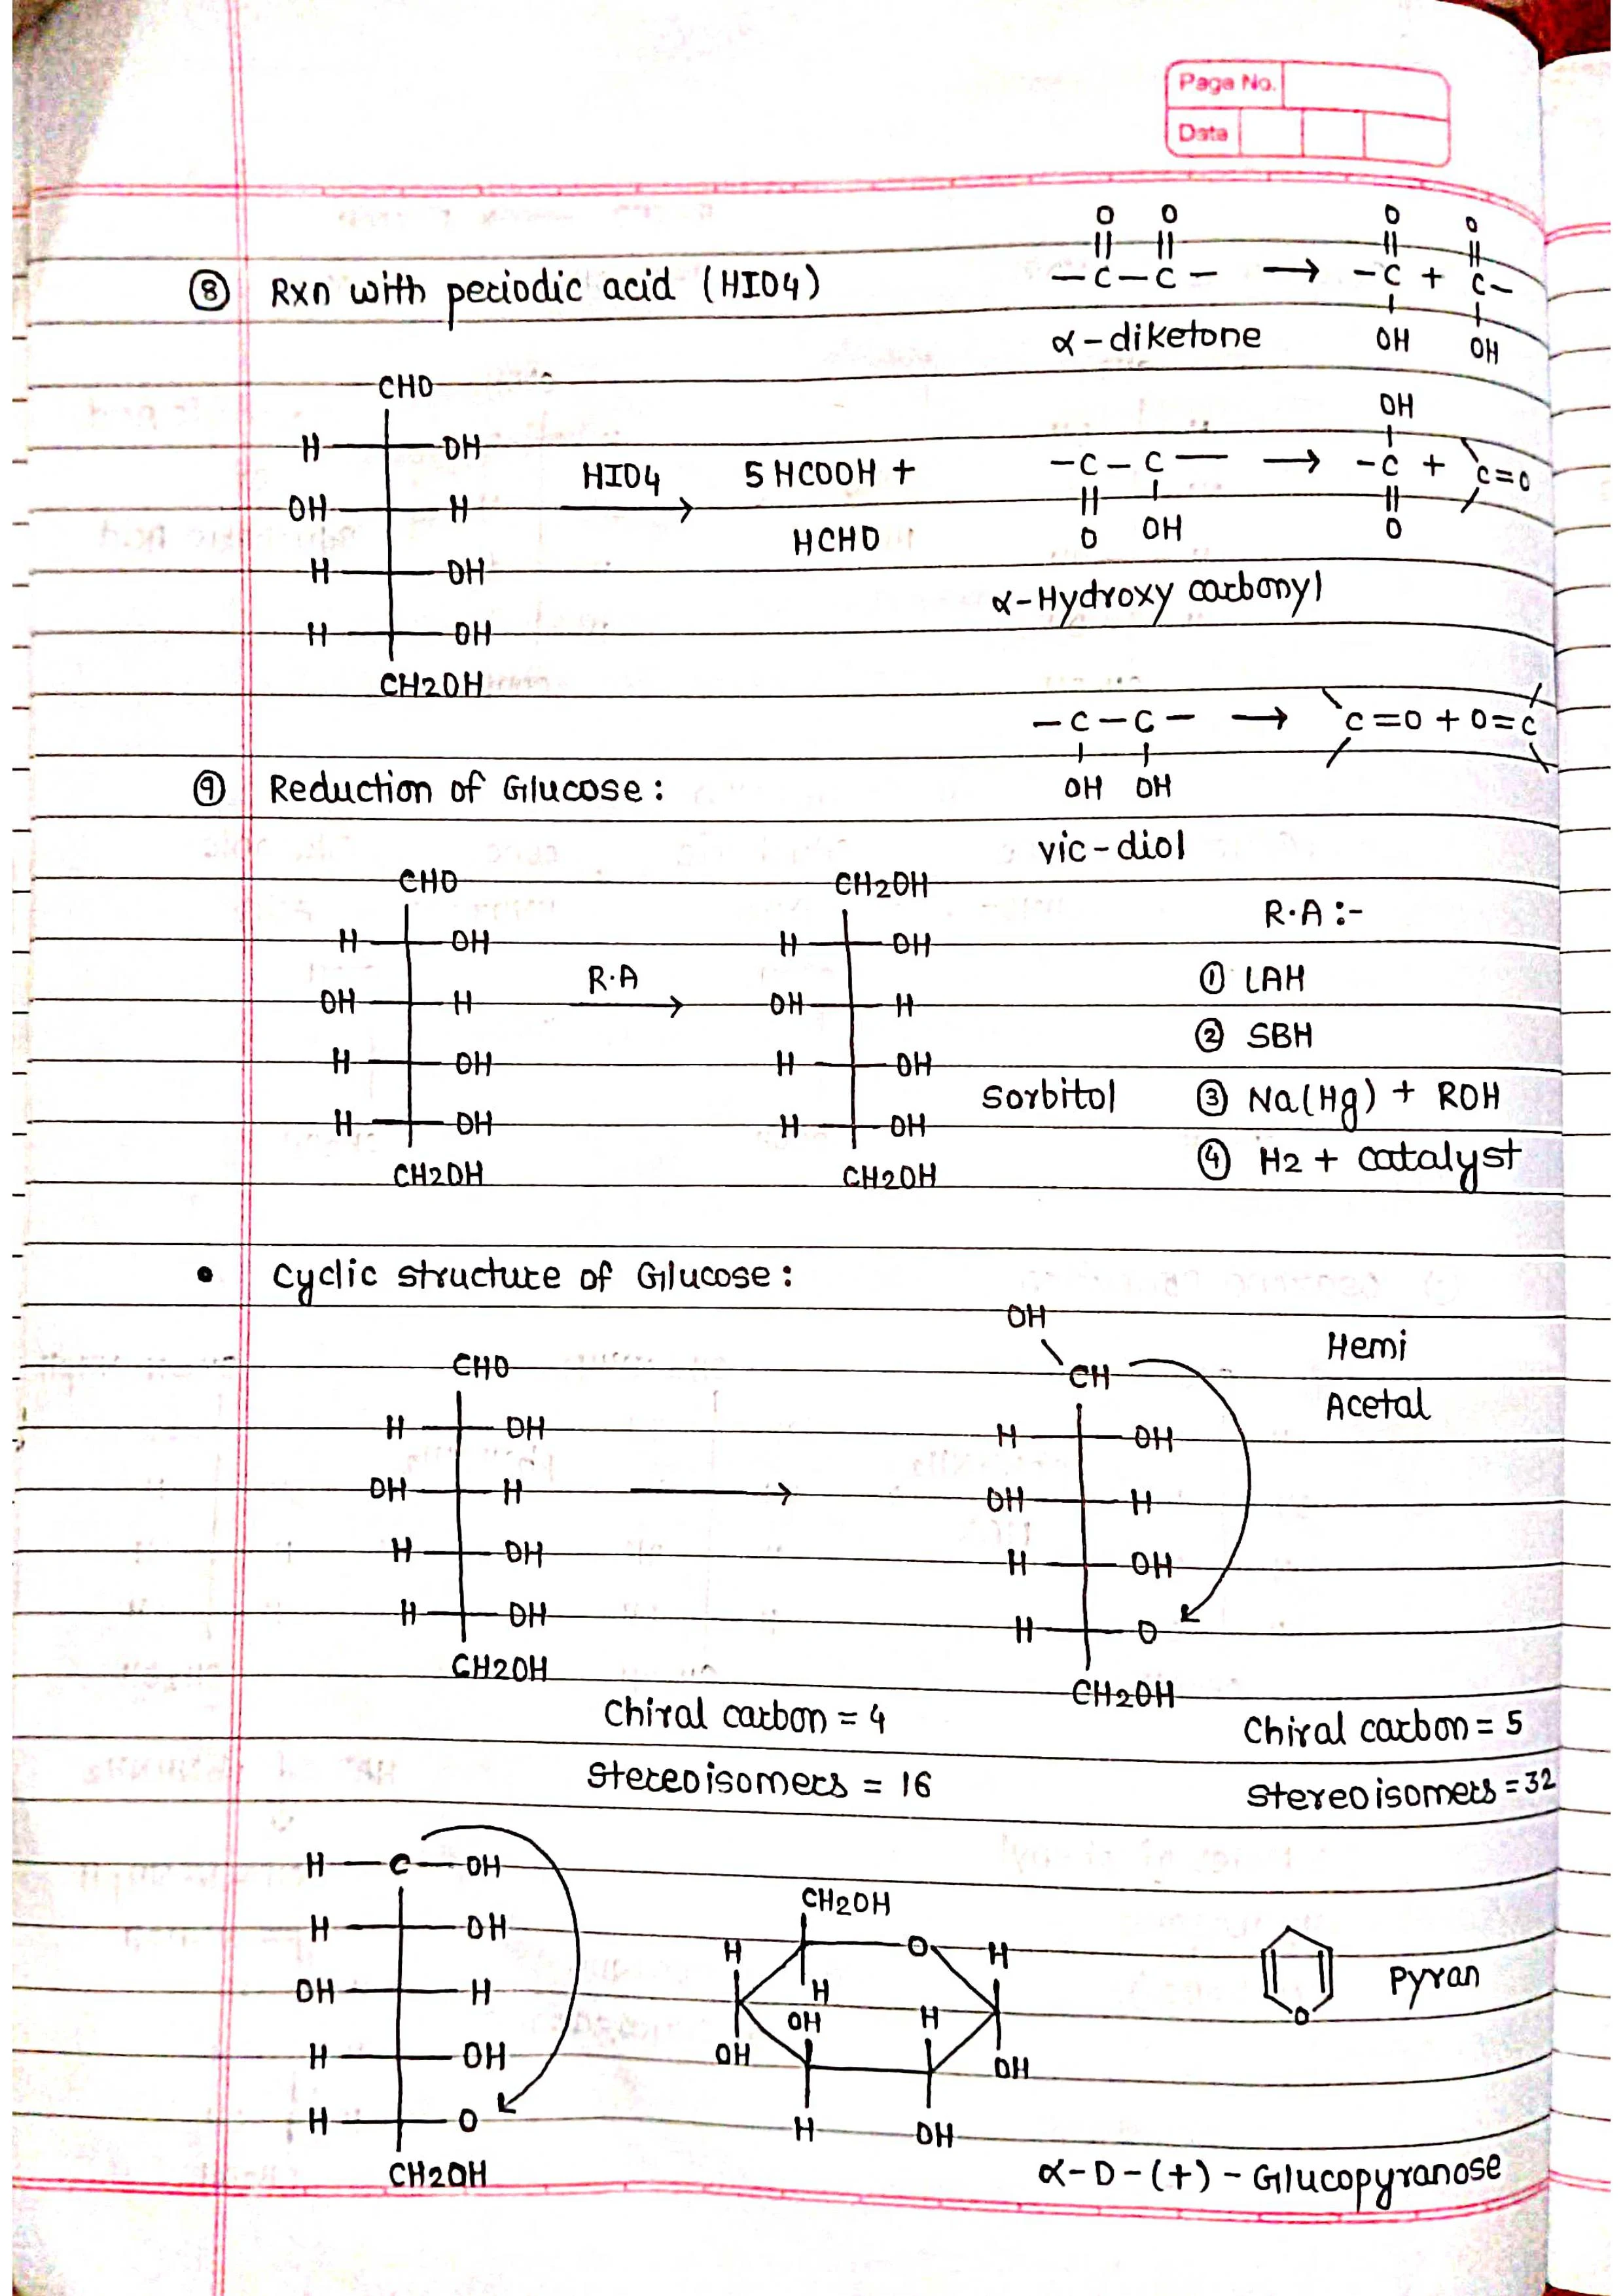 Page No.
Date
⑧ Rxn with periodic acid (HIO4)
O O O O
—C—C— → —C + C—
OH OH
α-diketone
CHO
H OH
OH H
H OH
H OH
CH2OH
HIO4 →
5 HCOOH +
HCHO
OH
—C—C— → —C + C=O
O OH O
α-Hydroxy carbonyl
—C—C— → C=O + O=C
OH OH
vic-diol
⑨ Reduction of Glucose :
CHO
H OH
OH H
H OH
H OH
CH2OH
R.A →
CH2OH
H OH
OH H
H OH
H OH
CH2OH
Sorbitol
R.A :-
① LAH
② SBH
③ Na(Hg) + ROH
④ H2 + catalyst
• Cyclic structure of Glucose :
CHO
H OH
OH H
H OH
H OH
CH2OH
→
OH
CH
H OH
OH H
H OH
H O
CH2OH
Hemi
Acetal
Chiral carbon = 4
Stereoisomers = 16
Chiral carbon = 5
Stereoisomers = 32
H—C—OH
H OH
OH H
H OH
H O
CH2OH
CH2OH
H O H
H
OH H
OH OH
H OH
O
Pyran
α-D-(+)-Glucopyranose